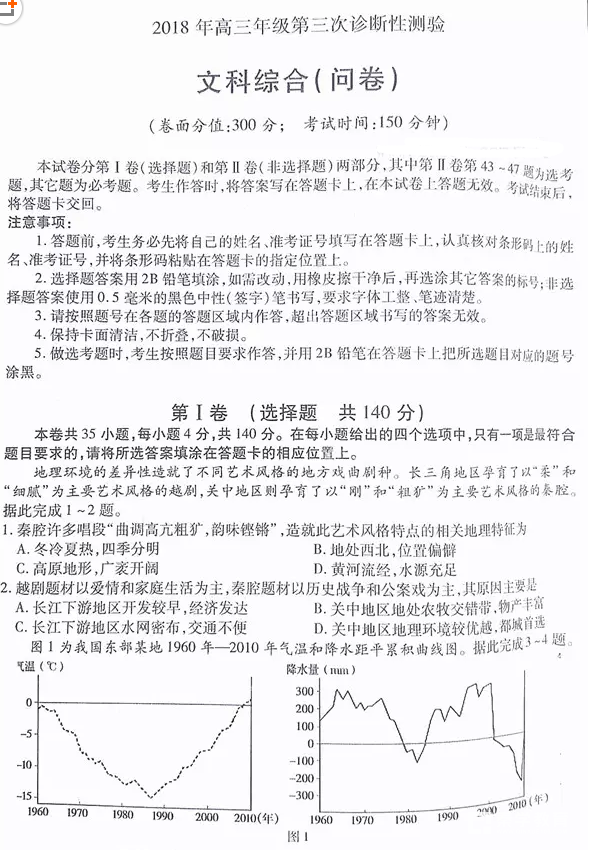 2018年高三年级第三次诊断性测验
文科综合(问卷)
(卷面分值:300分; 考试时间:150分钟)
本试卷分第Ⅰ卷(选择题)和第Ⅱ卷(非选择题)两部分,其中第Ⅱ卷第43~47题为选考
题,其它题为必考题。考生作答时,将答案写在答题卡上,在本试卷上答题无效。考试结束后,
将答题卡交回。
注意事项:
1.答题前,考生务必先将自己的姓名、准考证号填写在答题卡上,认真核对条形码上的姓
名、准考证号,并将条形码粘贴在答题卡的指定位置上。
2.选择题答案用2B铅笔填涂,如需改动,用橡皮擦干净后,再选涂其它答案的标号;非选
择题答案使用0.5毫米的黑色中性(签字)笔书写,要求字体工整、笔迹清楚。
3.请按照题号在各题的答题区域内作答,超出答题区域书写的答案无效。
4.保持卡面清洁,不折叠,不破损。
5.做选考题时,考生按照题目要求作答,并用2B铅笔在答题卡上把所选题目对应的题号
涂黑。
第Ⅰ卷 (选择题 共140分)
本卷共35小题,每小题4分,共140分。在每小题给出的四个选项中,只有一项是最符合
题目要求的,请将所选答案填涂在答题卡的相应位置上。
地理环境的差异性造就了不同艺术风格的地方戏曲剧种。长三角地区孕育了以“柔”和
“细腻”为主要艺术风格的越剧,关中地区则孕育了以“刚”和“粗犷”为主要艺术风格的秦腔。
据此完成1~2题。
1.秦腔许多唱段“曲调高亢粗犷,韵味铿锵”,造就此艺术风格特点的相关地理特征为
A.冬冷夏热,四季分明 B.地处西北,位置偏僻
C.高原地形,广袤开阔 D.黄河流经,水源充足
2.越剧题材以爱情和家庭生活为主,秦腔题材以历史战争和公案戏为主,其原因主要是
A.长江下游地区开发较早,经济发达 B.关中地区地处农牧交错带,物产丰富
C.长江下游地区水网密布,交通不便 D.关中地区地理环境较优越,都城首选
图1为我国东部某地1960年—2010年气温和降水距平累积曲线图。据此完成3~4题。
气温(℃) 降水量(mm)
0 -5 -10 -15
1960 1970 1980 1990 2000 2010(年)
300 200 100 0 -100 -200 -300
1960 1970 1980 1990 2000 2010(年)
图1